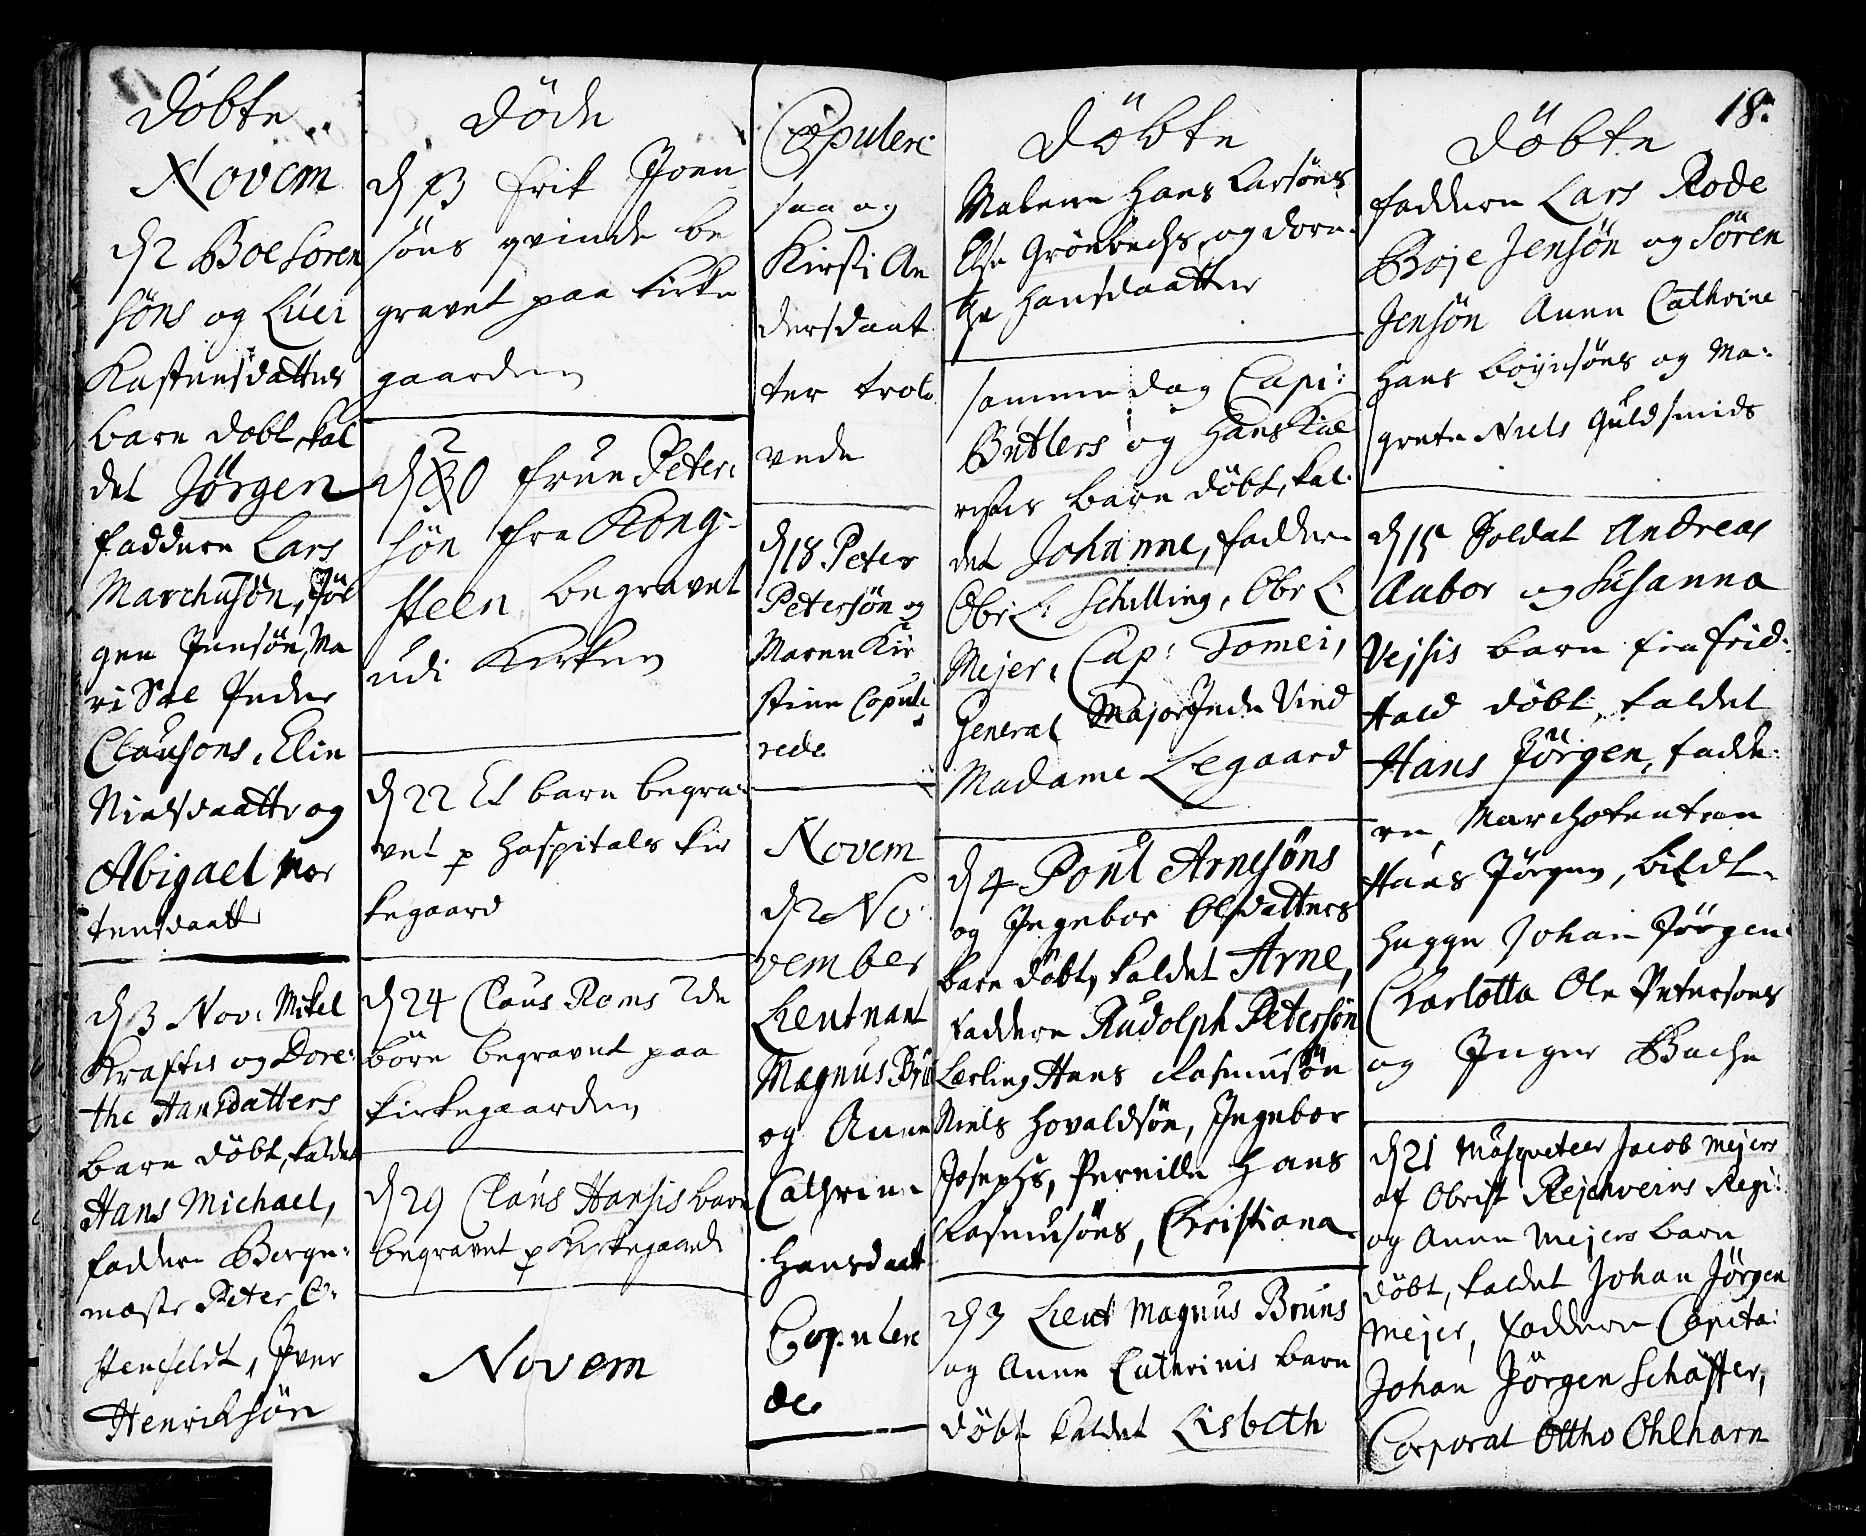 Döbte
Novem
d 2 Boe Soren
söns og Luci
Kastensdatters
barn dobt, kal
det Jörgen
faddere Lars
Marchusön, Jör
gen Jensön, Ma
ri Peder
Clausons, Elin
Nielsdaattr og
Abigael Mor
tensdaatt
d 3 Nov: Mikel
Krafts og Dore:
the Hansdatters
barn döbt, kaldet
Hans Michael,
faddere Borge:
mæstr Peter C:
stenfeldt, Iver
Henriksön
Döde
d 13 Erik Joen
söns qvinde be
gravet paa kirke
gaarden
d 20 frue Peter:
sön fra Kong:
steen begravet
udi Kirken
d 22 Et barn begra:
vet p hospitals kir
kegaard
d 24 Claus Roms 2de
börn begravet paa
kirkegaarden
d 29 Claus Hansis barn
begravet p Kirkegaard
Novem
Copulere
saa og
Kirsti An
dersdaat
ter trolo
vede
d 18 Peter
Petersön og
Maren Kir
stine Copule
rede
Novem
d 2 No
vember
Lieutnant
Magnus Bru
og Anne
Cathrine
Hansdaatt
Copulere
de
Döbte
Malene Hans Larsöns
Else Grönbechs og Doro:
the Hansdaatter
samme dag Capi:
Butlers og Hans Kiæ
restis barn döbt, kal:
det Johanne, faddere
Obr: L: Schilling, Obr L:
Mejer, Cap: Tomei,
General Major Vind
Madame Legaard
d 4 Poul Arnesöns
og Ingebor Olsdatters
barn döbt, kaldet Arne,
faddere Rudolph Petersön
Lærling Hans Rasmusön
Niels Hovaldsön, Ingebor
Josephs, Pernille Hans
Rasmusöns, Christiana
d 3 Lieut Magnus Bruns
og Anne Cathrinis barn
döbt kaldet Lisbeth
18.
Döbte
faddere Lars Rode
Boje Jensön og Sören
Jensön Anne Cathrine
Hans Boyesöns og Ma:
grete Niels Guldsmids
d 15 Soldat Andreas
Aabor og Susanna
Vejsis barn fra Frid:
Hald döbt, kaldet
Hans Jörgen, fadde:
re, Marchetentern
Hans Jörgen, bildt-
hugger Johan Jörgen
Charlotta Ole Petersons
og Inger Bache
d 21 Musqveteer Jacob Mejers
af Obrist Rejchweins Regi:
og Anne Mejers barn
döbt, kaldet Johan Jörgen
Mejer, faddere Capita:
Johan Jörgen Schäffer,
Corporal Ottho Ohlharn